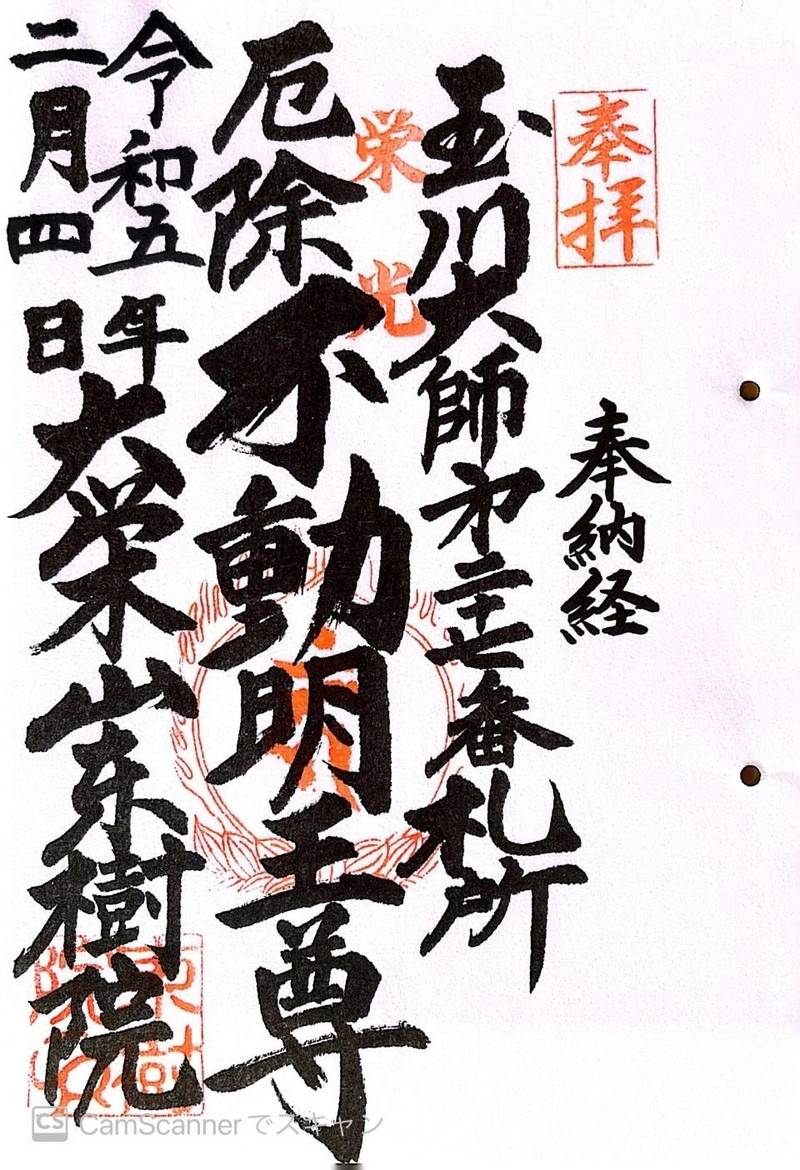 奉拝
奉納経
玉川大師第二十七番札所
栄光
厄除不動明王尊
令和五年
二月四日
大栄山东樹院
CS CamScanner でスキャン